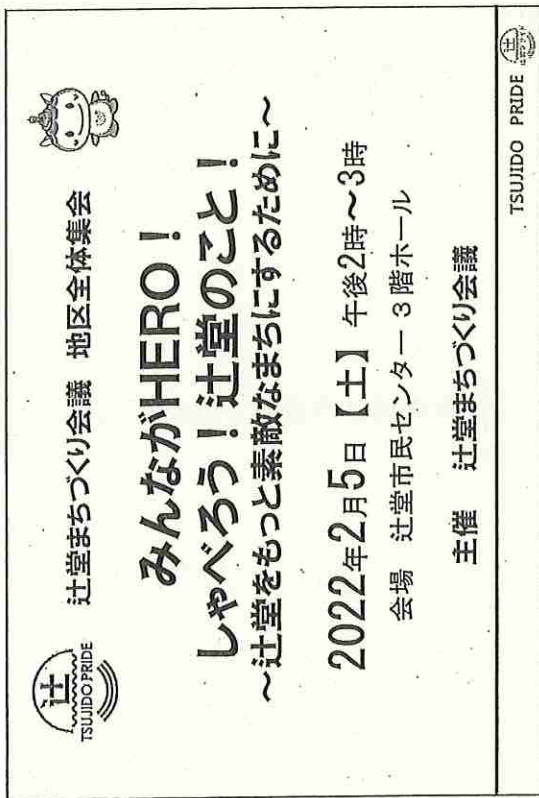 辻
TSUJIDO PRIDE
辻堂まちづくり会議 地区全体集会
みんながHERO!
しゃべろう!辻堂のこと!
~辻堂をもっと素敵なまちにするために~
2022年2月5日【土】午後2時~3時
会場 辻堂市民センター3階ホール
主催 辻堂まちづくり会議
TSUJIDO PRIDE
辻